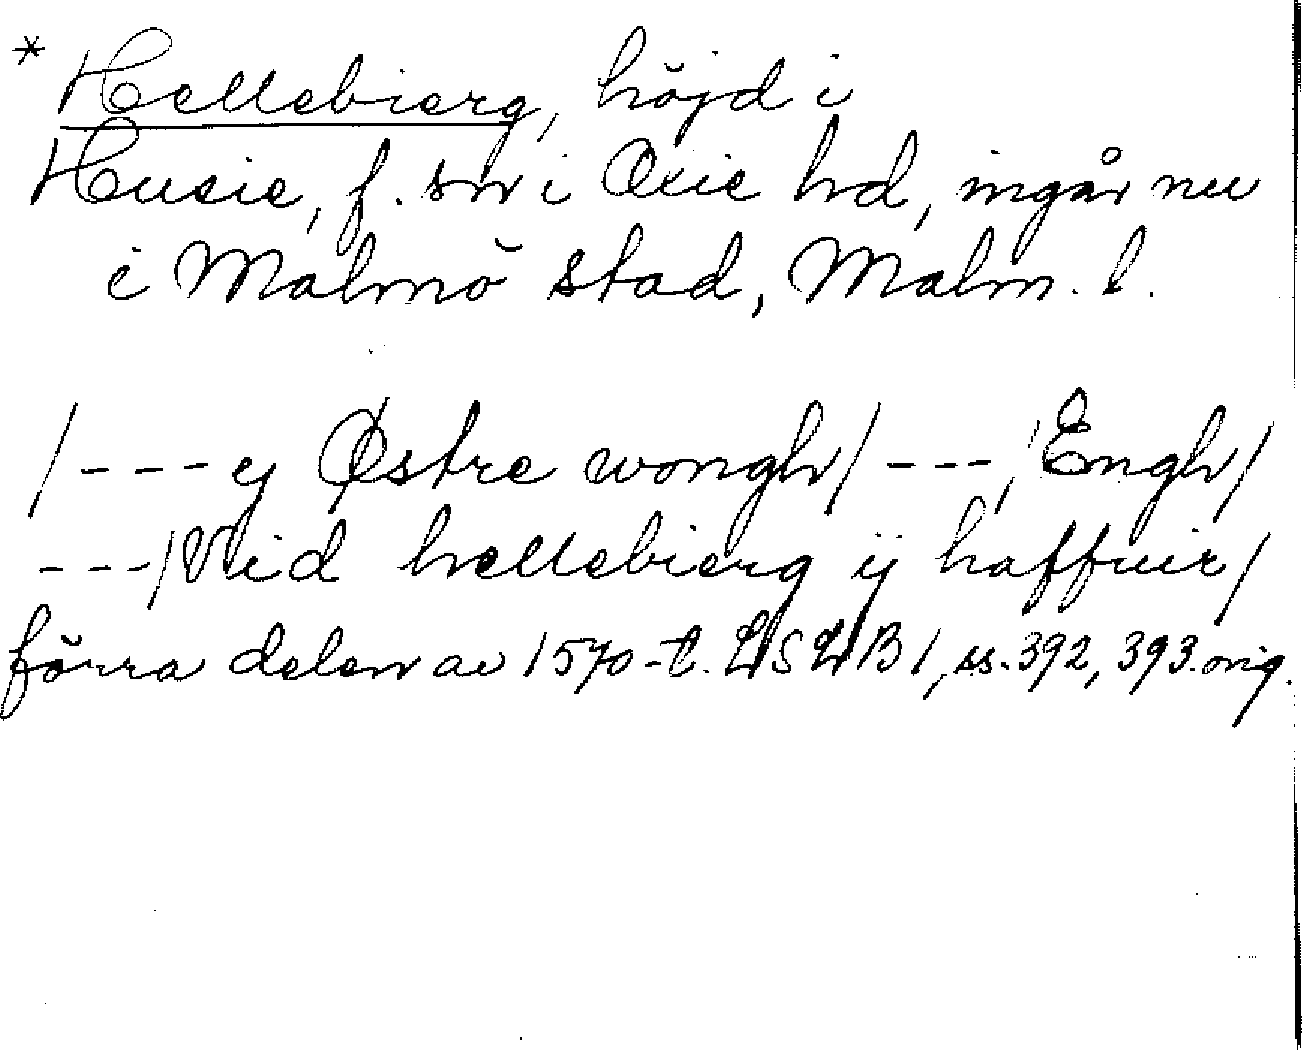 * Hellebierg, höjd i
Husie, f. sn i Oxie hd, ingår nu
i Malmö stad, Malm. l.
/---ej Østre wongh/---,/Engh/
---/Vid hellebierg ij haffuir/
förra delen av 1570-t. LSLB 1, ss. 392, 393. orig.